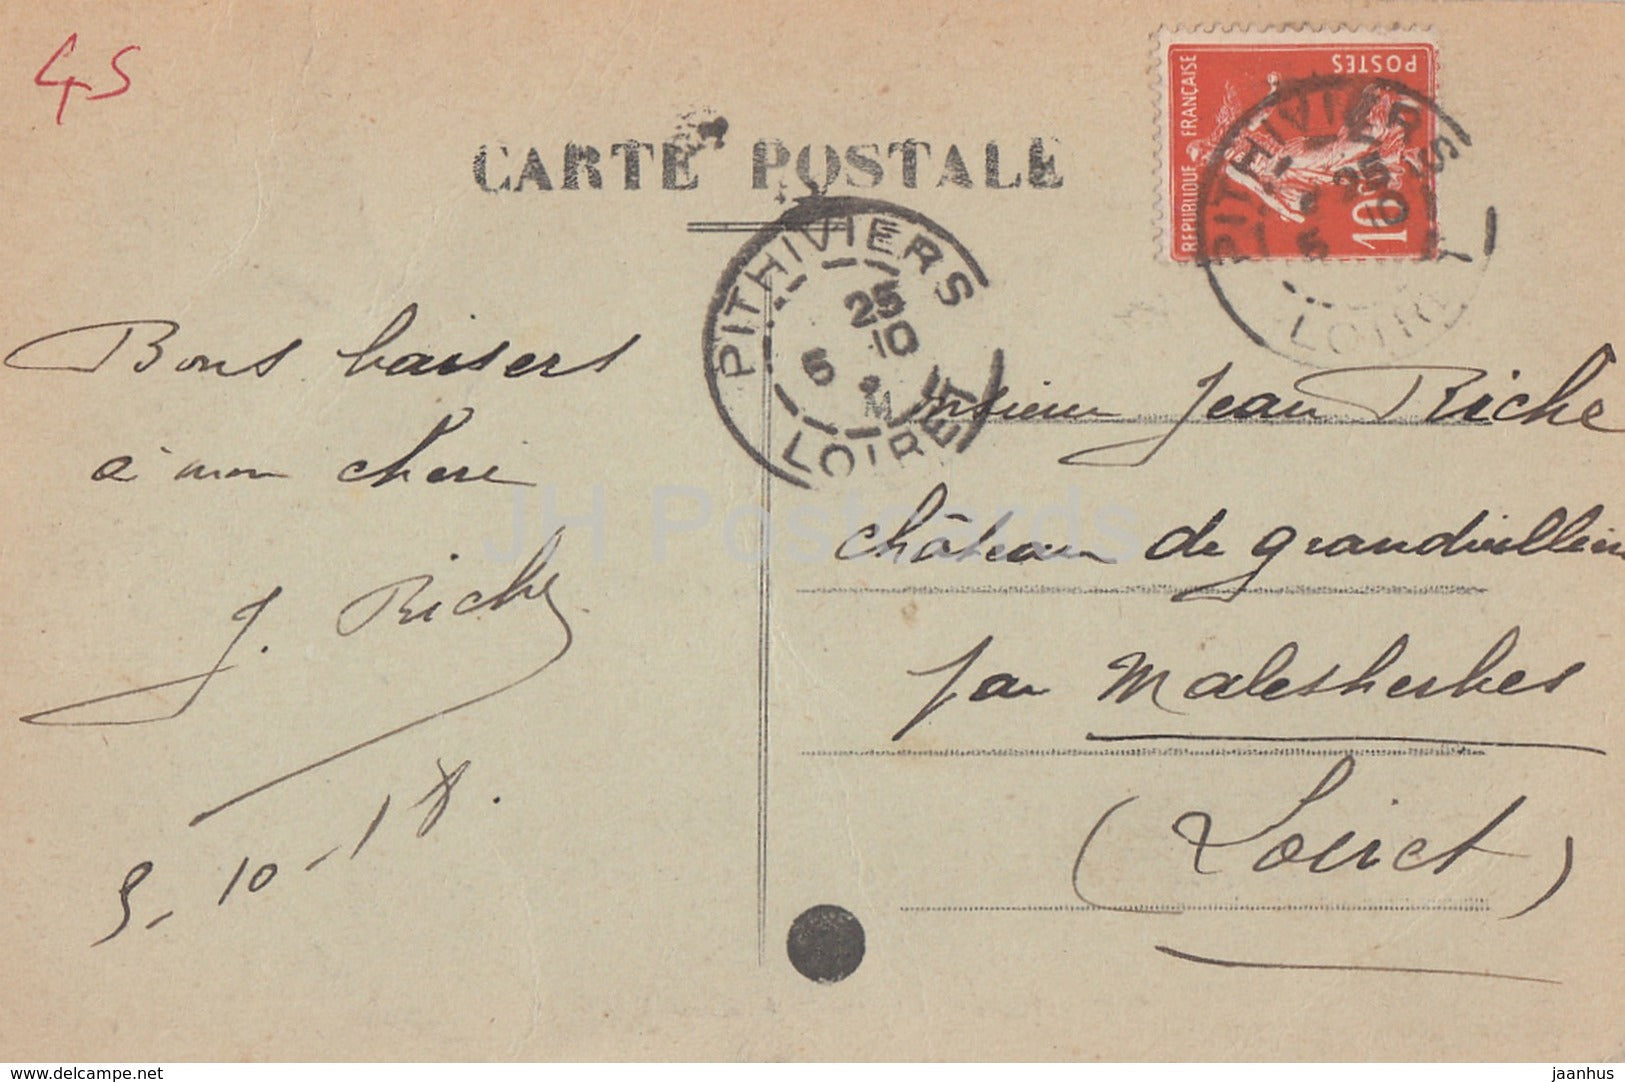 45
CARTE POSTALE
REPUBLIQUE FRANÇAISE
POSTES
10c
PITHIVIERS
25
5 10
LOIRET
PITHIVIERS
25
5 10
LOIRET
Bons baisers
à mon cheri
J. Riche
5-10-18.
Monsieur Jean Riche
château de grandvilliers
par Malesherbes
(Loiret)
JH Postcards
delcampe.net
jaanhus